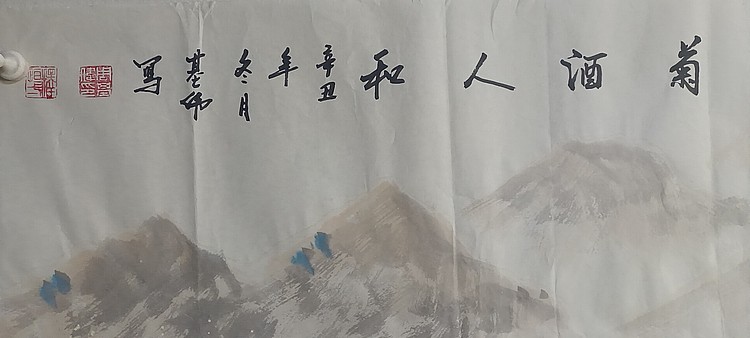 菊酒人和
辛丑
年
冬月
基伟
写